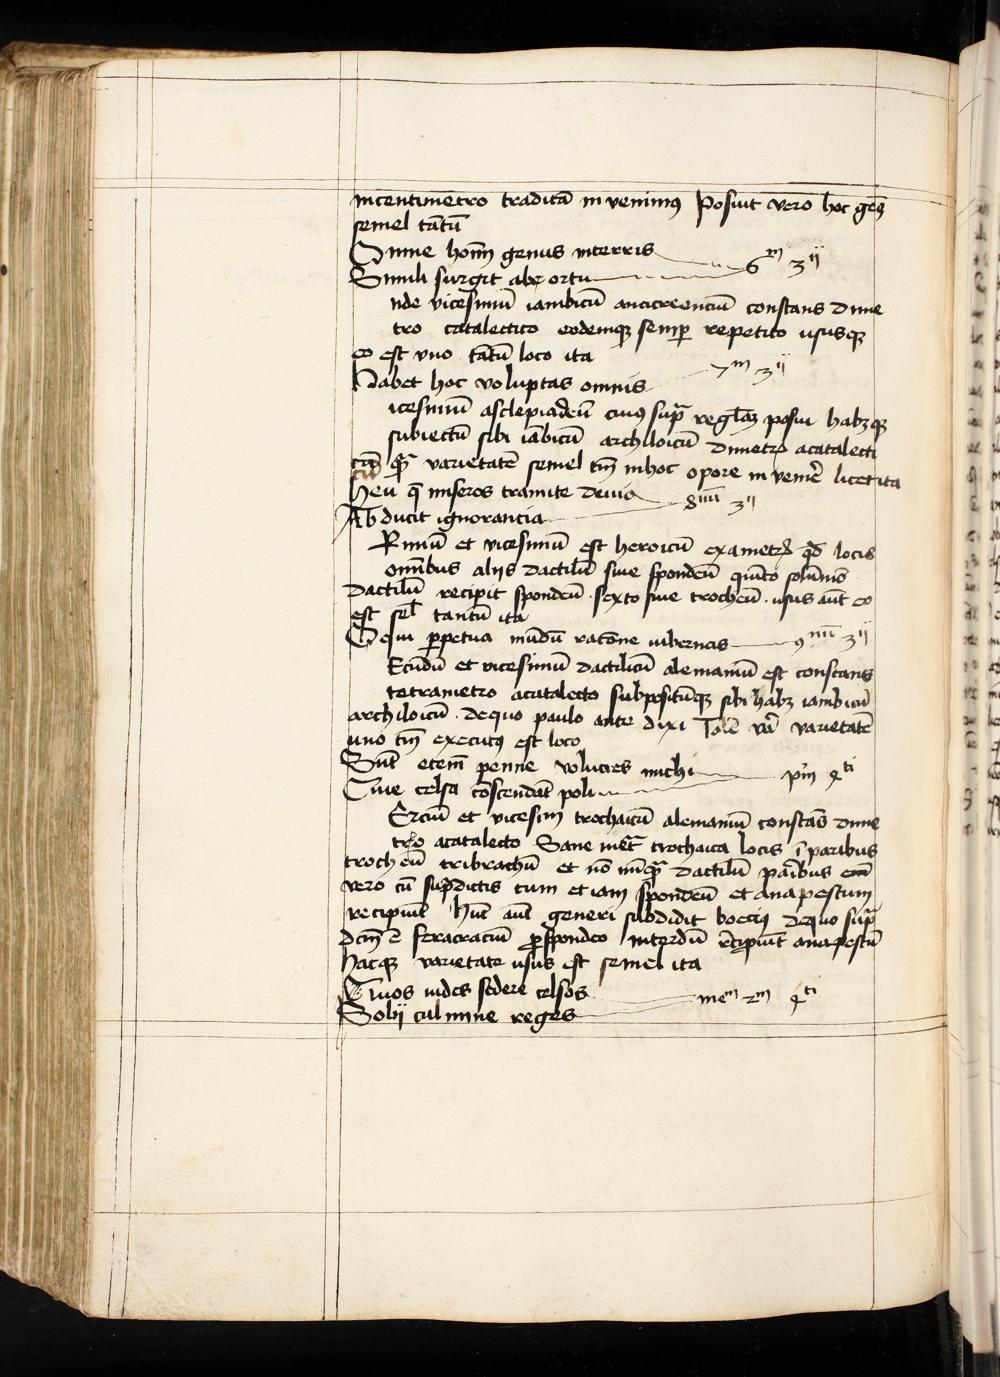 incentimetro traditā invenimꝰ Posuit vero hoc genꝰ
semel tātū
Omne homī genus interris
Simili surgit abe ortu 6ᵐ 3ⁱʲ
nde vicesimū iambicū anacreonciū constans dime
tro catalectico eodemqꝫ semꝑ repetito ususqꝫ
eo est uno tātū loco ita
Habet hoc voluptas omnis 7ᵐ 3ⁱʲ
icesimū asclepiadeū cuiꝰ supͣ regl̄az posui habꝫqꝫ
subiectū sibi iābicū archiloicū dimetrū acatalecti
cū qͣ varietatē semel tm̄ inhoc opere invenir̄e licet ita
Heu q̄ miseros tramite devio 8ⁱⁱⁱⁱ 3ⁱʲ
Abducit ignorantia
Rimū et vicesimū est heroicū exametrū qd̄ locis
omībus alijs dactilū siue spondeū quīto solūmō
dactilū recipit spondeū sexto siue trocheū usus aūt eo
est sel̄ tantū ita
Qui ꝑpetua mūdū racōne gubernas 9ⁿⁱⁱ 3ⁱʲ
Ecūdū et vicesimū dactilicū alemaniū est constans
tetrametro acatalecto subpositūqꝫ sibi habꝫ iambicū
archiloicū dequo paulo ante dixi varietatē
uno tm̄ executꝰ est loco
Sūt etem̄ penne volucres michi pͥm 4ᵗⁱ
Que celsa cōscendāt poli
Erciū et vicesim trochaicū alemaniū constās dime
tro acatalecto Sane metͣ trochaica locis īparibus
trocheū tribrachū et nō nūqͣ dactilū paribus
vero cū supͣdictis tum etiam spondeū et anapestum
recipiūt Huic aūt generi subdidit boeciꝰ dequo supͣ
dc̄m ē feracraciū ꝓ spondeo interdū rēcipiūt anapestū
hacqꝫ varietate usus est semel ita
Quos vides sedere celsos meᵐ 2ᵐ 4ᵗⁱ
Solij culmine reges